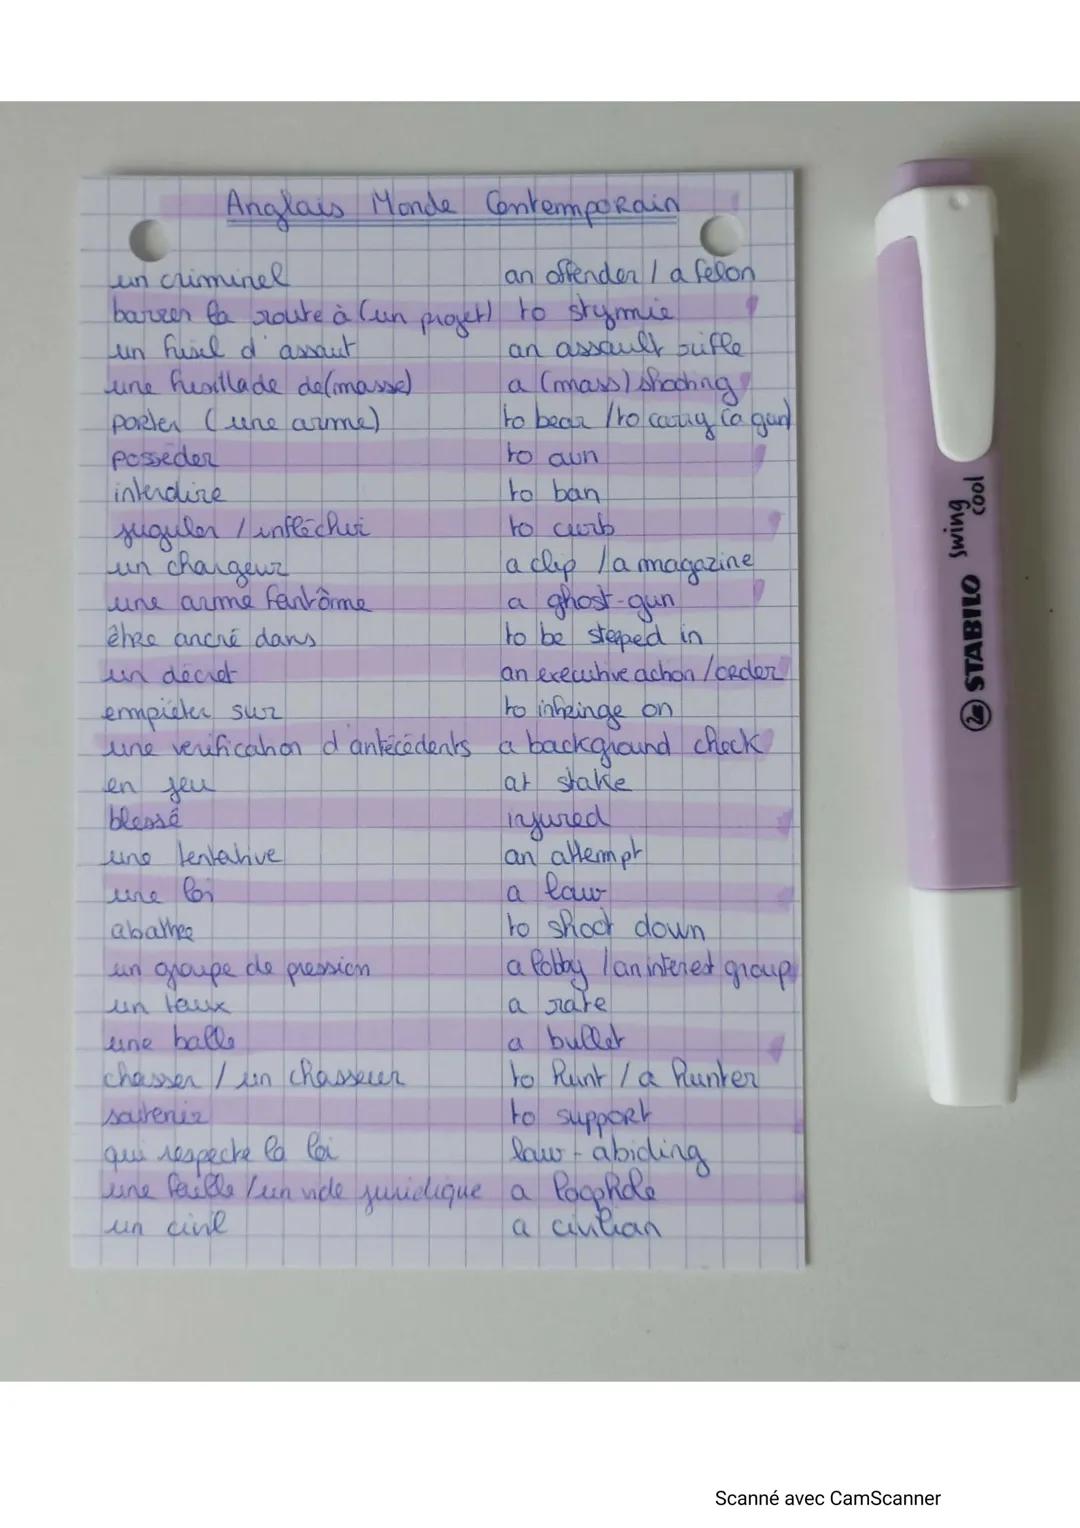 Anglais Monde Contemporain
un criminel an offender / a felon
barrer la route à (un projet) to stymie
un fusil d'assaut an assault rifle
une fusillade de (masse) a (mass) shooting
porter (une arme) to bear / to carry (a gun)
posséder to own
interdire to ban
juguler / infléchir to curb
un chargeur a clip / a magazine
une arme fantôme a ghost-gun
être ancré dans to be steeped in
un décret an executive action / order
empiéter sur to infringe on
une verification d'antécédents a background check
en jeu at stake
blessé injured
une tentative an attempt
une loi a law
abattre to shoot down
un groupe de pression a lobby / an interest group
un taux a rate
une balle a bullet
chasser / un chasseur to hunt / a hunter
soutenir to support
qui respecte la loi law-abiding
une faille / un vide juridique a loophole
un civil a civilian
STABILO swing cool
Scanné avec CamScanner